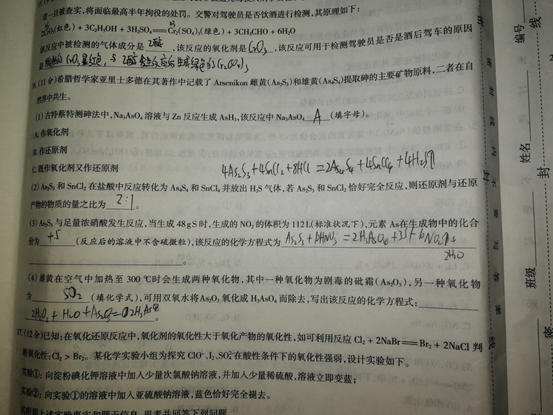 一旦被查实,将面临最高半年拘役的处罚。交警对驾驶员是否饮酒进行检测,其原理如下:
2CrO₃(红色) + 3C₂H₅OH + 3H₂SO₄══Cr₂(SO₄)₃(绿色) + 3CH₃CHO + 6H₂O
该反应中被检测的气体成分是 乙醇 ,该反应的氧化剂是 CrO₃ ,该反应可用于检测驾驶员是否是酒后驾车的原因
(11分)希腊哲学家亚里士多德在其著作中记载了 Arsenikon 雌黄(As₂S₃)和雄黄(As₄S₄)提取砷的主要矿物原料,二者在自
然界中共生。
(1)古特蔡特测砷法中,Na₃AsO₃溶液与 Zn 反应生成 AsH₃,该反应中 Na₃AsO₃ A (填字母)。
A.作氧化剂
B.作还原剂
C.既作氧化剂又作还原剂
4As₂S₃+4SnCl₂+8HCl =2As₄S₄+4SnCl₄+4H₂S↑
(2)As₂S₃和SnCl₂在盐酸中反应转化为As₄S₄和SnCl₄并放出H₂S气体,若As₂S₃和SnCl₂恰好完全反应,则还原剂与还原
产物的物质的量之比为 2:1 。
(3)As₂S₃与足量浓硝酸反应,当生成48 g S时,生成的NO₂的体积为112L(标准状况下),元素As在生成物中的化合
价为 +5 (反应后的溶液中不含硫微粒),该反应的化学方程式为
2H₂O
(4)雄黄在空气中加热至300 ℃时会生成两种氧化物,其中一种氧化物为剧毒的砒霜(As₂O₃),另一种氧化物
为 SO₂ (填化学式),可用双氧水将As₂O₃氧化成H₃AsO₄而除去,写出该反应的化学方程式:
17.(12分)已知:在氧化还原反应中,氧化剂的氧化性大于氧化产物的氧化性,如可利用反应Cl₂ + 2NaBr══Br₂ + 2NaCl判
断氧化性:Cl₂ > Br₂。某化学实验小组为探究ClO⁻、I₂、SO₄²⁻在酸性条件下的氧化性强弱,设计实验如下。
实验①:向淀粉碘化钾溶液中加入少量次氯酸钠溶液,并加入少量稀硫酸,溶液立即变蓝;
实验②:向实验①的溶液中加入亚硫酸钠溶液,蓝色恰好完全褪去。
线
编号
姓名
封
班级